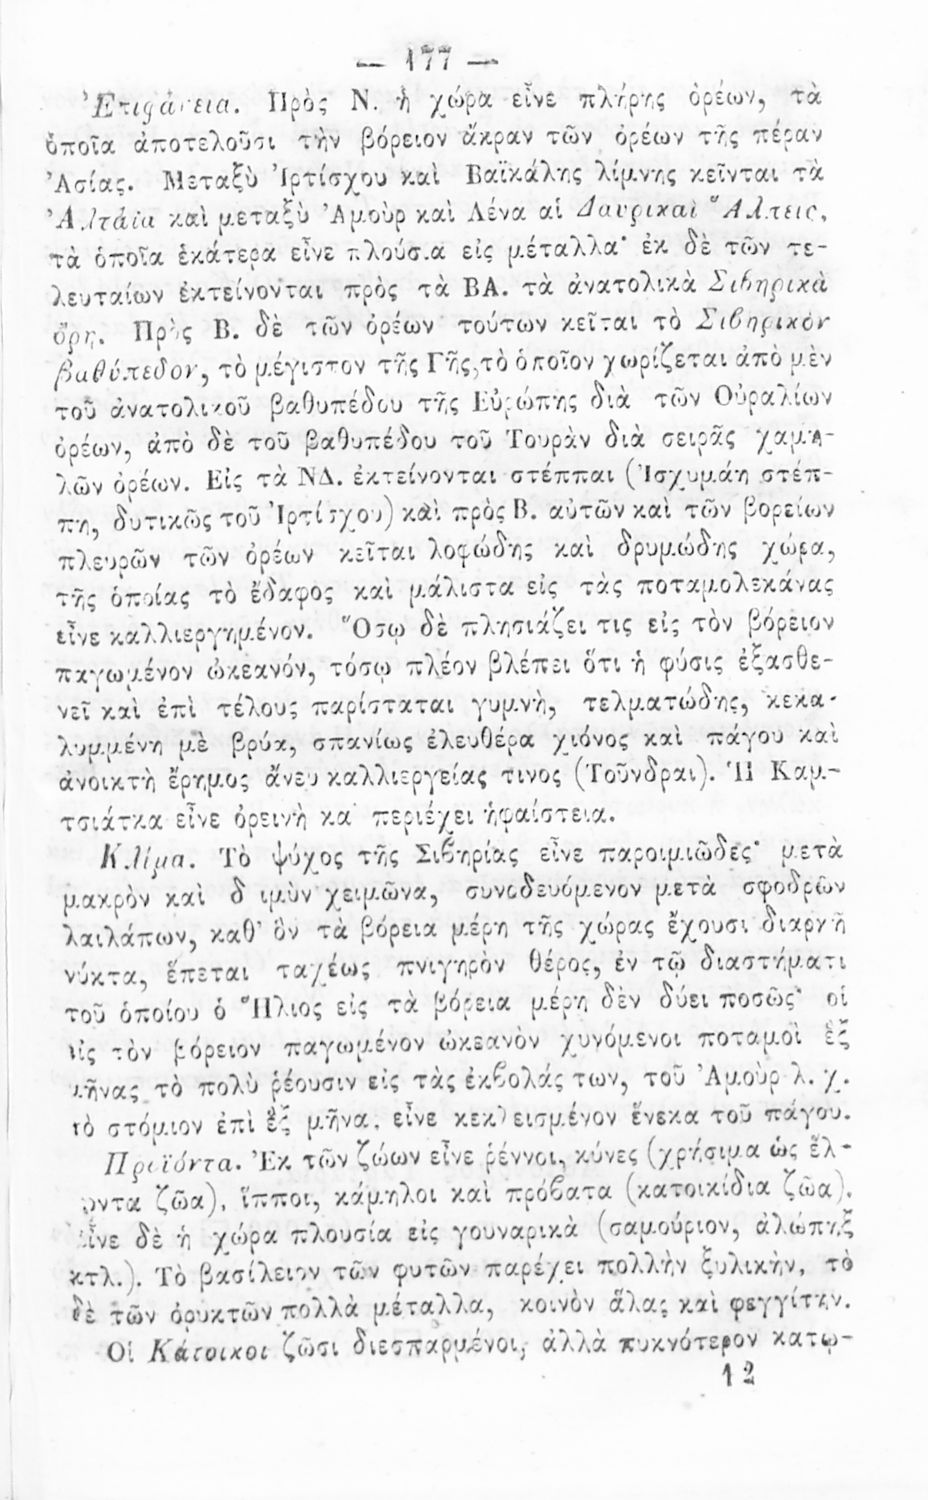 — 177 —
Ἐπιφάνεια. Πρὸς Ν. ἡ χώρα εἶνε πλήρης ὀρέων, τὰ
ὁποῖα ἀποτελοῦσι τὴν βόρειον ἄκραν τῶν ὀρέων τῆς πέραν
Ἀσίας. Μεταξὺ Ἰρτίσχου καὶ Βαϊκάλης λίμνης κεῖνται τὰ
Ἀλτάϊα καὶ μεταξὺ Ἀμοὺρ καὶ Λένα αἱ Δαυρικαὶ Ἄλπεις,
τὰ ὁποῖα ἑκάτερα εἶνε πλούσια εἰς μέταλλα· ἐκ δὲ τῶν τε-
λευταίων ἐκτείνονται πρὸς τὰ ΒΑ. τὰ ἀνατολικὰ Σιβηρικὰ
ὄρη. Πρὸς Β. δὲ τῶν ὀρέων τούτων κεῖται τὸ Σιβηρικὸν
βαθύπεδον, τὸ μέγιστον τῆς Γῆς, τὸ ὁποῖον χωρίζεται ἀπὸ μὲν
τοῦ ἀνατολικοῦ βαθυπέδου τῆς Εὐρώπης διὰ τῶν Οὐραλίων
ὀρέων, ἀπὸ δὲ τοῦ βαθυπέδου τοῦ Τουρὰν διὰ σειρᾶς χαμη-
λῶν ὀρέων. Εἰς τὰ ΝΔ. ἐκτείνονται στέππαι (Ἰσχυμάη στέπ-
πη, δυτικῶς τοῦ Ἰρτίσχου) καὶ πρὸς Β. αὐτῶν καὶ τῶν βορείων
πλευρῶν τῶν ὀρέων κεῖται λοφώδης καὶ δρυμώδης χώρα,
τῆς ὁποίας τὸ ἔδαφος καὶ μάλιστα εἰς τὰς ποταμολεκάνας
εἶνε καλλιεργημένον. Ὅσῳ δὲ πλησιάζει τις εἰς τὸν βόρειον
παγωμένον ὠκεανόν, τόσῳ πλέον βλέπει ὅτι ἡ φύσις ἐξασθε-
νεῖ καὶ ἐπὶ τέλους παρίσταται γυμνὴ, τελματώδης, κεκα-
λυμμένη μὲ βρύα, σπανίως ἐλευθέρα χιόνος καὶ πάγου καὶ
ἀνοικτὴ ἔρημος ἄνευ καλλιεργείας τινος (Τοῦνδραι). Ἡ Καμ-
τσιάτκα εἶνε ὀρεινὴ κα περιέχει ἡφαίστεια.
Κλίμα. Τὸ ψύχος τῆς Σιβηρίας εἶνε παροιμιῶδες· μετὰ
μακρὸν καὶ δ ιμὺν χειμῶνα, συνοδευόμενον μετὰ σφοδρῶν
λαιλάπων, καθ' ὃν τὰ βόρεια μέρη τῆς χώρας ἔχουσι διαρκῆ
νύκτα, ἕπεται ταχέως πνιγηρὸν θέρος, ἐν τῷ διαστήματι
τοῦ ὁποίου ὁ Ἥλιος εἰς τὰ βόρεια μέρη δὲν δύει ποσῶς· οἱ
εἰς τὸν βόρειον παγωμένον ὠκεανὸν χυνόμενοι ποταμοὶ ἓξ
μῆνας τὸ πολὺ ῥέουσιν εἰς τὰς ἐκβολάς των, τοῦ Ἀμοὺρ λ. χ.
τὸ στόμιον ἐπὶ ἓξ μῆνας εἶνε κεκλεισμένον ἕνεκα τοῦ πάγου.
Προϊόντα. Ἐκ τῶν ζώων εἶνε ῥέννοι, κύνες (χρήσιμα ὡς ἕλ-
κοντα ζῶα), ἵπποι, κάμηλοι καὶ πρόβατα (κατοικίδια ζῶα).
Εἶνε δὲ ἡ χώρα πλουσία εἰς γουναρικὰ (σαμούριον, ἀλώπηξ
κτλ.). Τὸ βασίλειον τῶν φυτῶν παρέχει πολλὴν ξυλικὴν, τὸ
δὲ τῶν ὀρυκτῶν πολλὰ μέταλλα, κοινὸν ἅλας καὶ φεγγίτην.
Οἱ Κάτοικοι ζῶσι διεσπαρμένοι, ἀλλὰ πυκνότερον κατῳ-
12